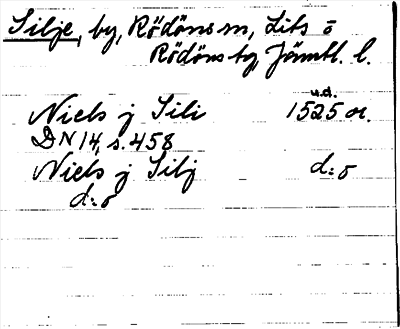 Silje, by, Rödöns sn, Lits o
Rödöns tg Jämtl. l.
u.d.
Niels j Sili 1525 or.
DN 14, s. 458
Niels j Silj d:o
d:o